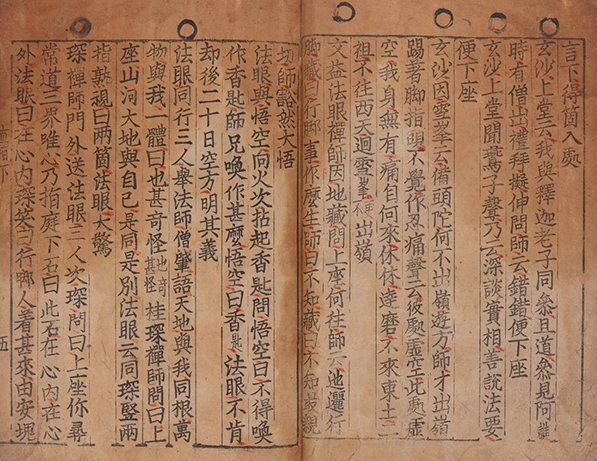 言下得箇入處
玄沙上堂云我與釋迦老子同叅且道叅見何誰
時有僧出禮拜擬伸問師云錯錯便下座
玄沙上堂聞鷰子聲乃云深談實相善說法要
便下座
玄沙因雪峯云備頭陀何不出嶺遊方師才出嶺
踢著脚指頭不覺作忍痛聲云彼處虛空此處虛
空我身無有痛自何來休休達磨不來東土二
祖不往西天迴雪峯出嶺
文益法眼禪師因地藏問上座何往師云迤邐行
脚藏曰行脚事作麽生師曰不知藏曰不知最親
切師豁然大悟
法眼與悟空向火次拈起香匙問悟空曰不得喚
作香匙師兄喚作甚麽悟空曰香匙法眼不肯
却後二十日空方明其義
法眼同行三人舉法師僧肇語天地與我同根萬
物與我一體曰也甚奇怪也奇甚怪桂琛禪師問曰上
座山河大地與自己是同是別法眼云同琛竪兩
指熟視曰兩箇法眼大驚
琛禪師門外送法眼二人次琛問曰上座你尋
常道三界唯心乃指庭下石曰此石在心內在心
外法眼曰在心內琛笑曰行脚人着甚來由安塊
五